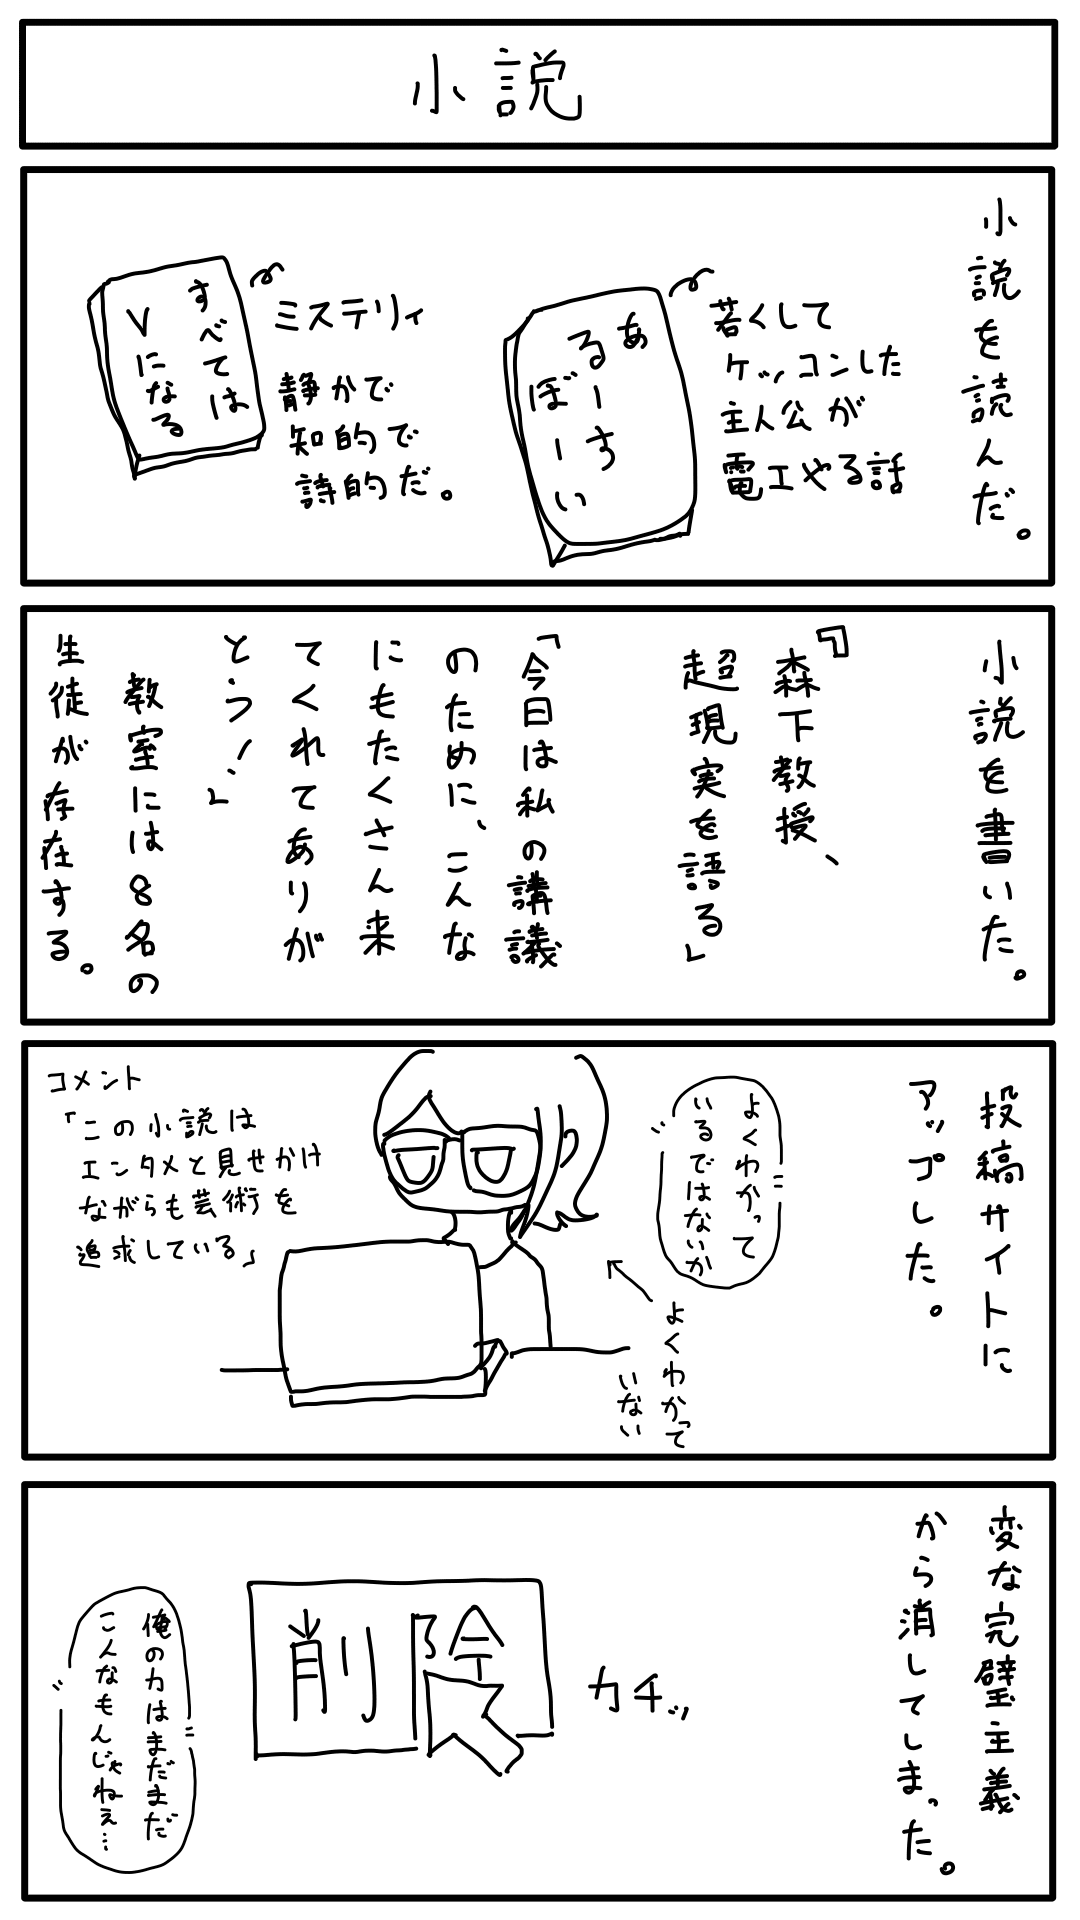 小説
小説を読んだ。
若くして
ケッコンした
主人公が
電工やる話
あ
るーす
ぼーい
ミステリィ
静かで
知的で
詩的だ。
すべては
Vになる
小説を書いた。
『森下教授、
超現実を語る」
「今日は私の講議
のために、こんな
にもたくさん来
てくれてありが
とう!」
教室には8名の
生徒が存在する。
投稿サイトに
アップした。
よくわかって
いるではないか
よくわかって
いない
コメント
「この小説は
エンタメと見せかけ
ながらも芸術を
追求している」
変な完璧主義
から消してしまった。
カチッ
削除
俺の力はまだまだ
こんなもんじゃねぇ…